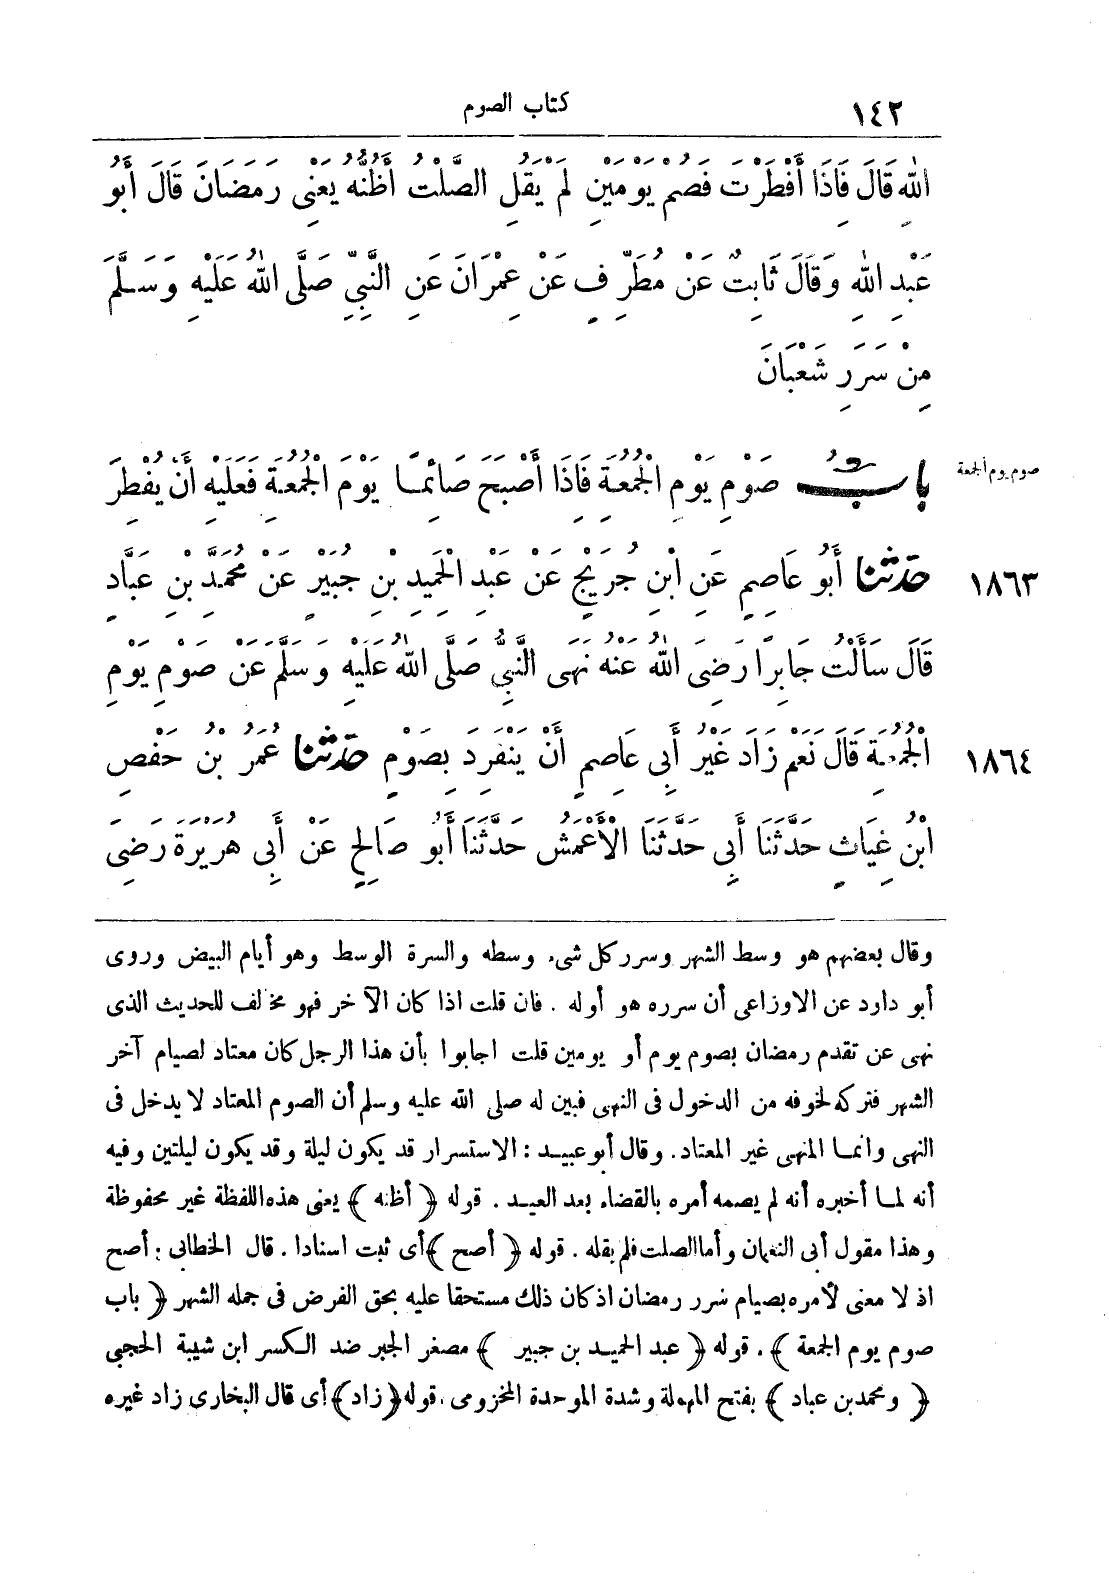 ١٤٢ كتاب الصوم
اللّٰهِ قَالَ فَإِذَا أَفْطَرْتَ فَصُمْ يَوْمَيْنِ لَمْ يَقُلِ الصَّلْتُ أَظُنُّهُ يَعْنِى رَمَضَانَ قَالَ أَبُو
عَبْدِ اللّٰهِ وَقَالَ ثَابِتٌ عَنْ مُطَرِّفٍ عَنْ عِمْرَانَ عَنِ النَّبِيِّ صَلَّى اللّٰهُ عَلَيْهِ وَسَلَّمَ
مِنْ سَرَرِ شَعْبَانَ
بابُ صَوْمِ يَوْمِ الْجُمُعَةِ فَإِذَا أَصْبَحَ صَائِمًا يَوْمَ الْجُمُعَةِ فَعَلَيْهِ أَنْ يُفْطِرَ
صوم يوم الجمعة
حَدَّثَنَا أَبُو عَاصِمٍ عَنِ ابْنِ جُرَيْجٍ عَنْ عَبْدِ الْحَمِيدِ بْنِ جُبَيْرٍ عَنْ مُحَمَّدِ بْنِ عَبَّادٍ
١٨٦٣
قَالَ سَأَلْتُ جَابِرًا رَضِىَ اللّٰهُ عَنْهُ نَهَى النَّبِيُّ صَلَّى اللّٰهُ عَلَيْهِ وَسَلَّمَ عَنْ صَوْمِ يَوْمِ
الْجُمُعَةِ قَالَ نَعَمْ زَادَ غَيْرُ أَبِى عَاصِمٍ أَنْ يَنْفَرِدَ بِصَوْمٍ حَدَّثَنَا عُمَرُ بْنُ حَفْصِ
١٨٦٤
ابْنِ غِيَاثٍ حَدَّثَنَا أَبِى حَدَّثَنَا الْأَعْمَشُ حَدَّثَنَا أَبُو صَالِحٍ عَنْ أَبِى هُرَيْرَةَ رَضِىَ
وقال بعضهم هو وسط الشهر وسرر كل شىء وسطه والسرة الوسط وهو أيام البيض وروى
أبو دارد عن الاوزاعى أن سرره هو أوله . فان قلت اذا كان الآخر فهو مخالف للحديث الذى
نهى عن تقدم رمضان بصوم يوم أو يومين قلت اجابوا بأن هذا الرجل كان معتاد لصيام آخر
الشهر فتركه لخوفه من الدخول فى النهى فبين له صلى الله عليه وسلم أن الصوم المعتاد لا يدخل فى
النهى وانما المنهى غير المعتاد. وقال أبو عبيد : الاستسرار قد يكون ليلة وقد يكون ليلتين وفيه
أنه لما أخبره أنه لم يصمه أمره بالقضاء بعد العيد . قوله ﴿ أظنه ﴾ يعنى هذه اللفظة غير محفوظة
وهذا مقول أبى النعمان وأما الصلت فلم يقله . قوله ﴿ أصح ﴾ أى ثبت اسنادا . قال الخطابى : أصح
اذ لا معنى لأمره بصيام سرر رمضان اذ كان ذلك مستحقا عليه بحق الفرض فى جمله الشهر ﴿ باب
صوم يوم الجمعة ﴾ . قوله ﴿ عبد الحميد بن جبير ﴾ مصغر الجبر ضد الكسر ابن شيبة الحجبى
﴿ ومحمد بن عباد ﴾ بفتح المهملة وشدة الموحدة المخزومى . قوله ﴿ زاد ﴾ أى قال البخارى زاد غيره